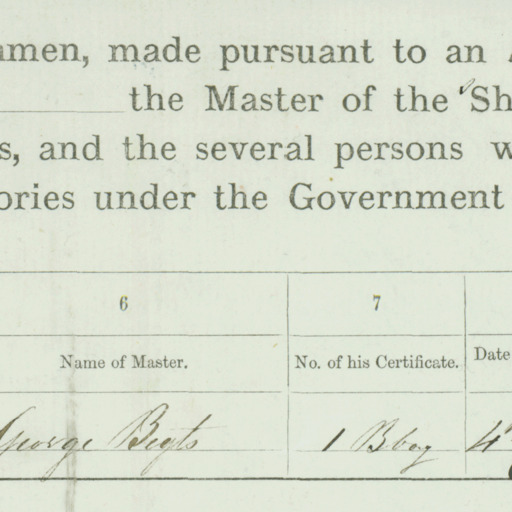 men, made pursuant to an
the Master of the Sh
s, and the several persons w
ories under the Government
6 7
Name of Master. No. of his Certificate. Date
George 1 Bbay 4